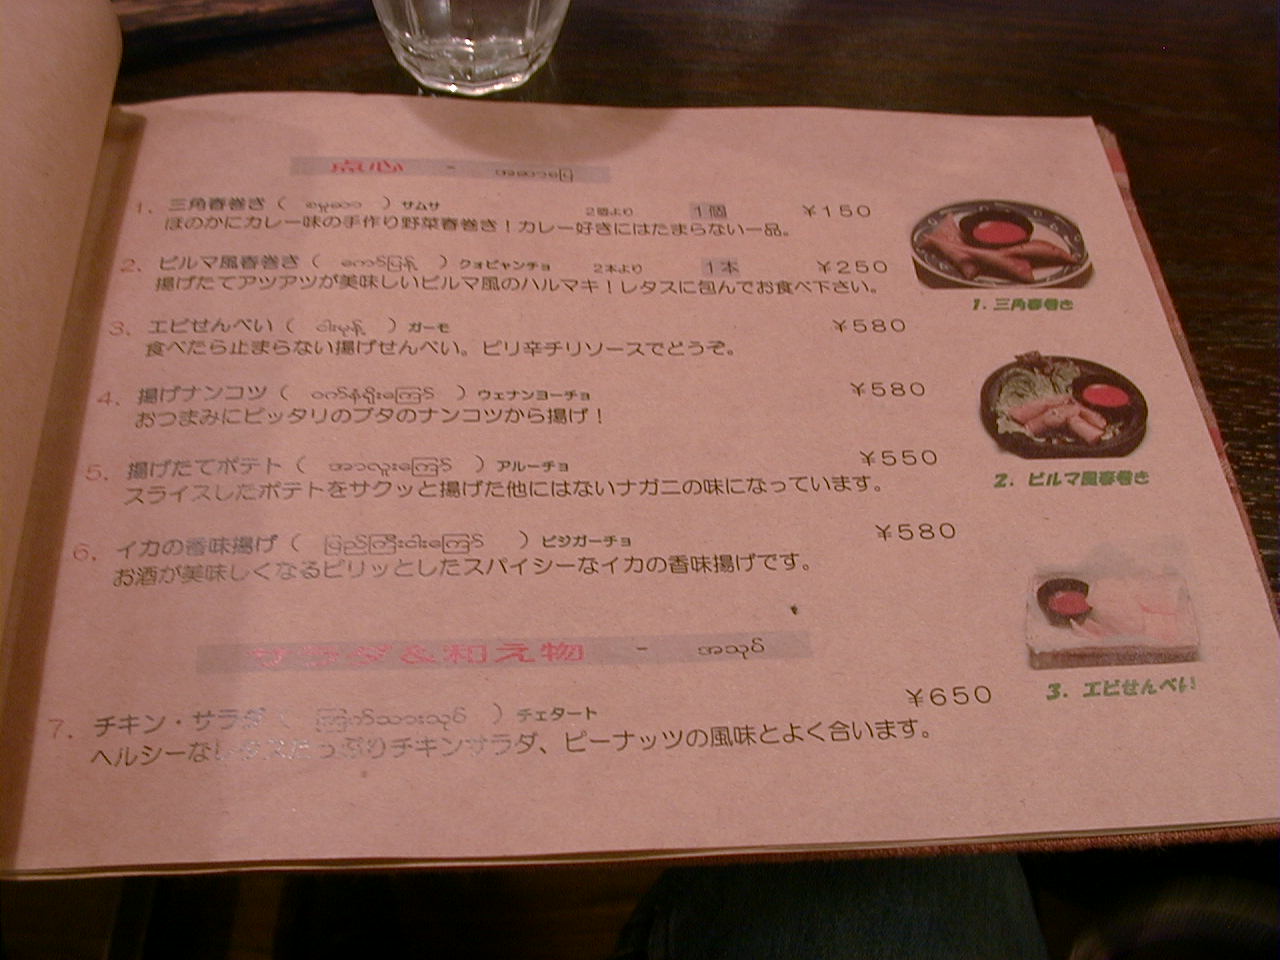 点心 - အဆာပြေ
1. 三角春巻き ( စမူဆာ ) サムサ 2個より 1個 ￥150
ほのかにカレー味の手作り野菜春巻き！カレー好きにはたまらない一品。
2. ビルマ風春巻き ( ကော်ပြန့် ) クォピャンチョ 2本より 1本 ￥250
揚げたてアツアツが美味しいビルマ風のハルマキ！レタスに包んでお食べ下さい。
3. エビせんべい ( ငါးမုန့် ) ガーモ ￥580
食べたら止まらない揚げせんべい。ピリ辛チリソースでどうぞ。
4. 揚げナンコツ ( ဝက်နံရိုးကြော် ) ウェナンヨーチョ ￥580
おつまみにピッタリのブタのナンコツから揚げ！
5. 揚げたてポテト ( အာလူးကြော် ) アルーチョ ￥550
スライスしたポテトをサクッと揚げた他にはないナガニの味になっています。
6. イカの香味揚げ ( ပြည်ကြီးငါးကြော် ) ピジガーチョ ￥580
お酒が美味しくなるピリッとしたスパイシーなイカの香味揚げです。
サラダ&和え物 - အသုပ်
7. チキン・サラダ ( ကြက်သားသုပ် ) チェタート ￥650
ヘルシーなレタスたっぷりチキンサラダ、ピーナッツの風味とよく合います。
1. 三角春巻き
2. ビルマ風春巻き
3. エビせんべい